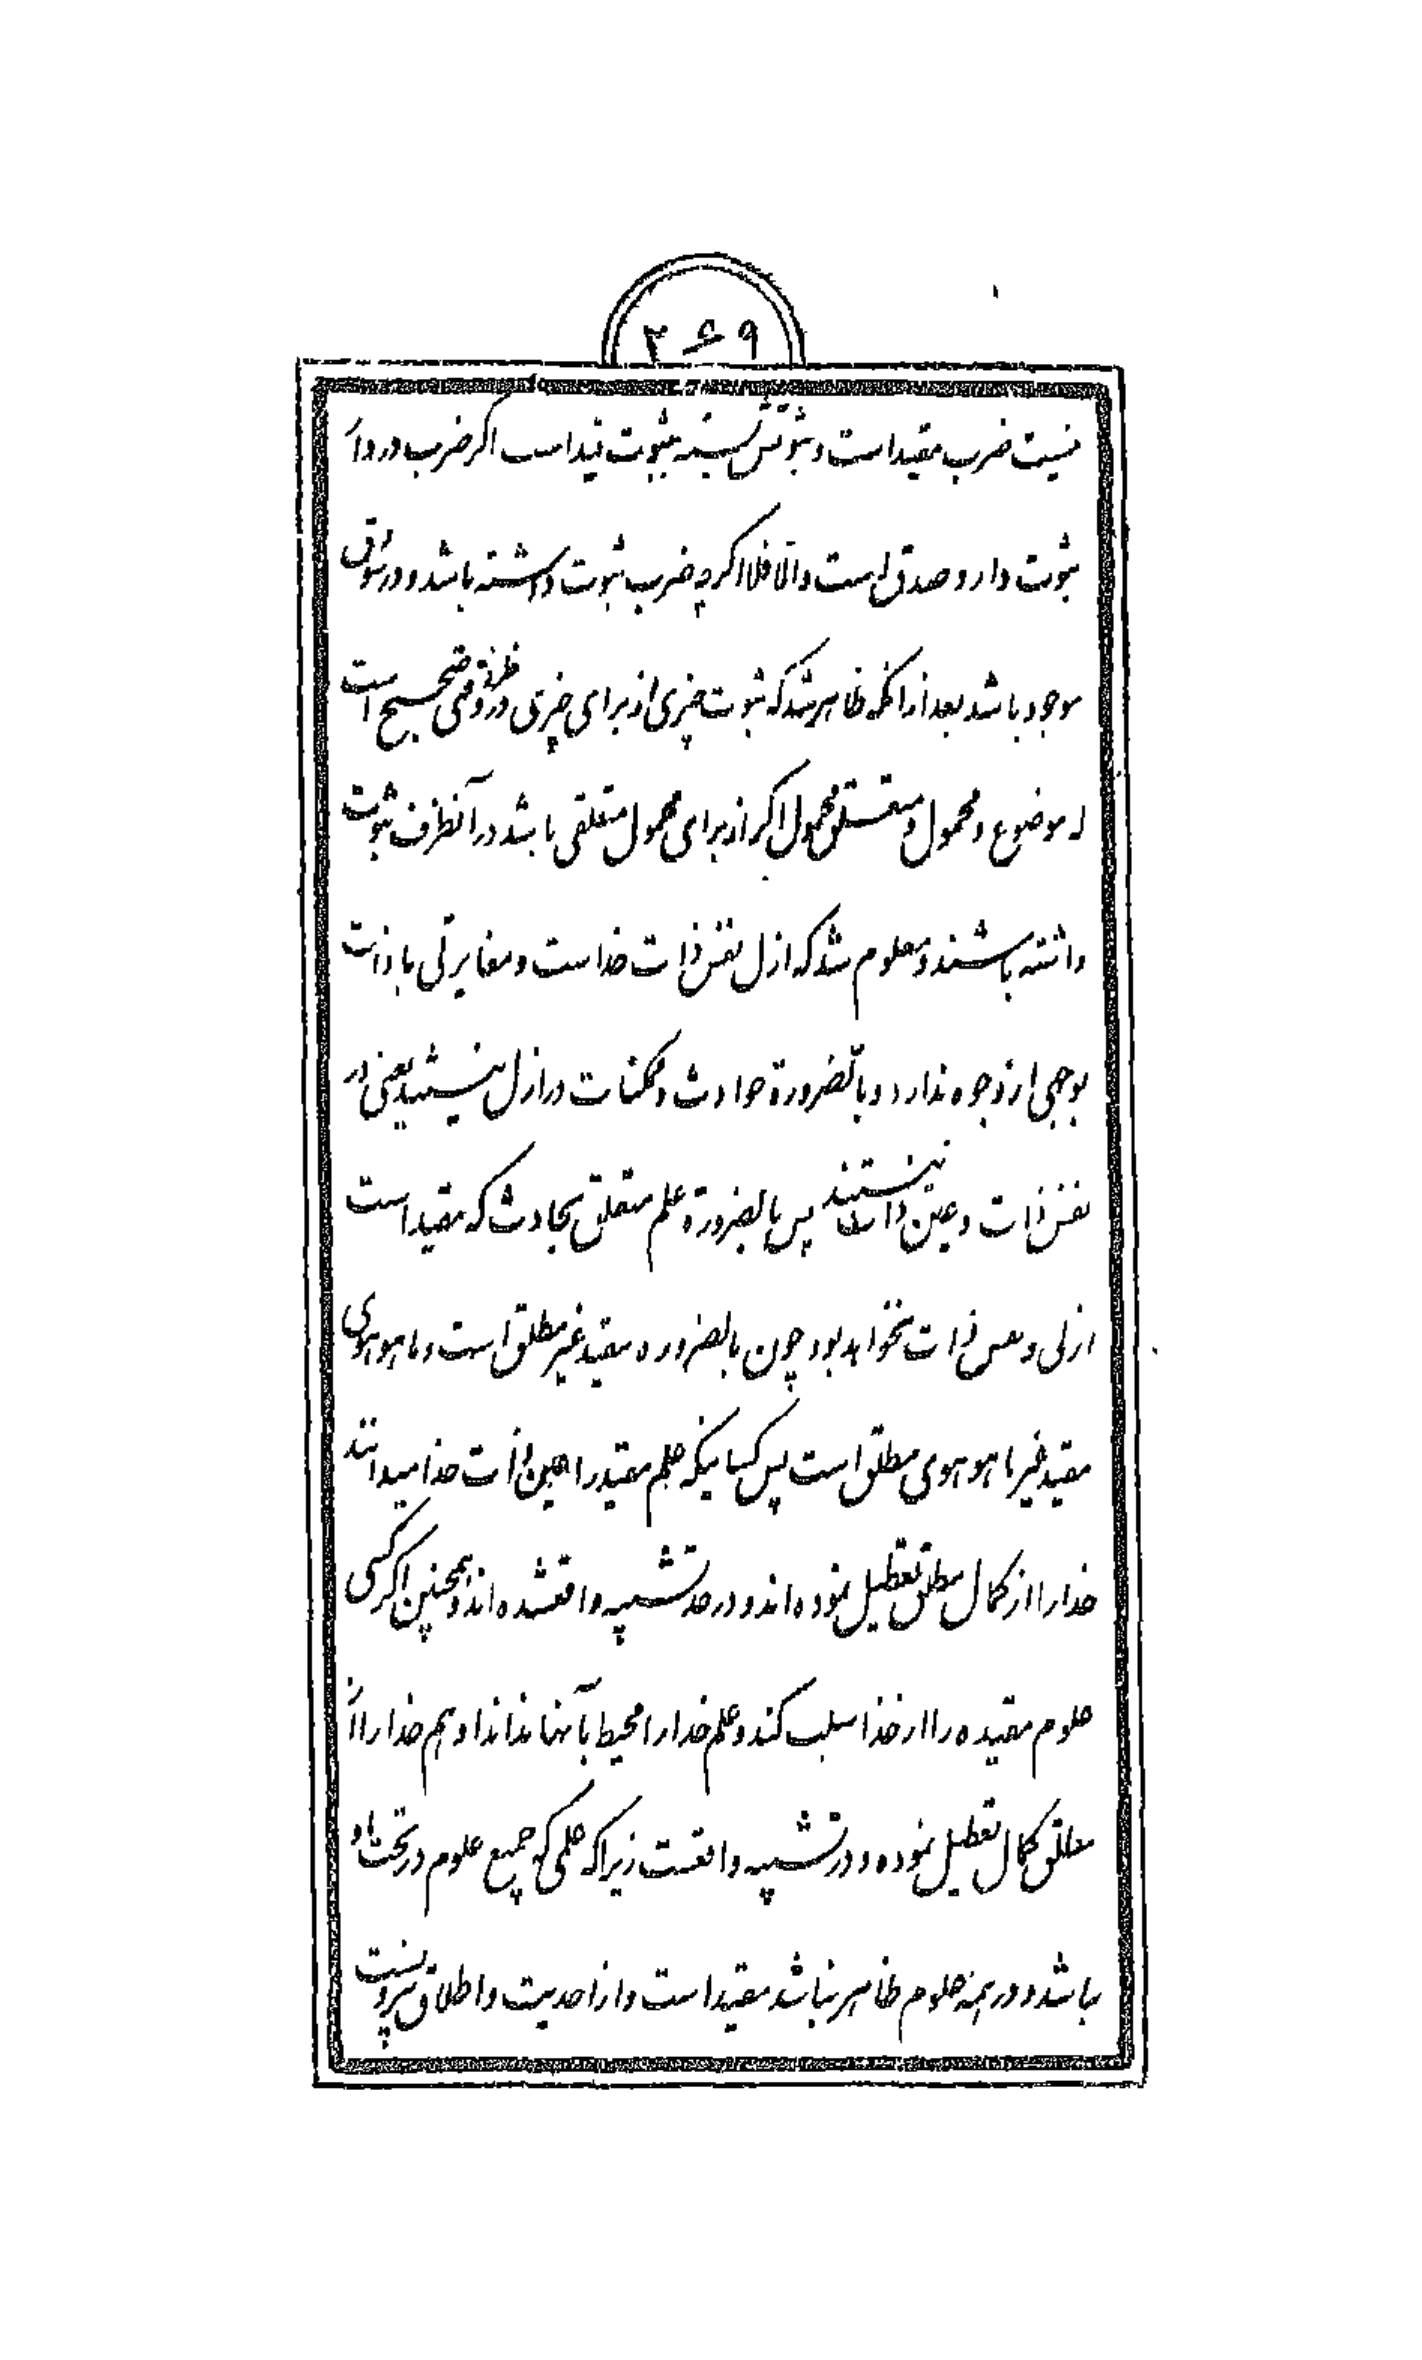 ۲۶۹
نیست ضرب مقید است و ثبوتش بسته بثبوت قید است اگر ضرب در دار
ثبوت دارد صدق است والا فلا اگرچه ضرب ثبوت داشته باشد و در سوق
موجود باشد بعد از آنکه ظاهر شد که ثبوت چیزی از برای چیزی در ظرفی وقتی صحیح است
که موضوع و محمول و متعلق محمول اگر از برای محمول متعلقی باشد در آنظرف ثبوت
داشته باشند و معلوم شد که ازل نفس ذات خداست و مغایرتی با ذات
بوجهی از وجوه ندارد و بالضرورة حوادث و ممکنات در ازل نیستند یعنی در
نفس ذات و عین ذات نیستند پس بالضرورة علم متعلق بحادث که مقید است
ازلی و نفس ذات نخواهد بود چون بالضروره مقید غیر مطلق است و ماهوهوی
مقید غیر ماهوهوی مطلق است پس کسانیکه علم مقید را عین ذات خدا میدانند
خدا را از کمال مطلق تعطیل نموده اند و در حد تشبیه واقعشده اند و همچنین اگر کسی
علوم مقیده را از خدا سلب کند و علم خدا را محیط بآنها نداند او هم خدا را از
مطلق کمال تعطیل نموده و در تشبیه واقعست زیرا که علمی که جمیع علوم در تحت او
نباشد و در همه علوم ظاهر نباشد مقید است و از احدیت و اطلاق بیرونست